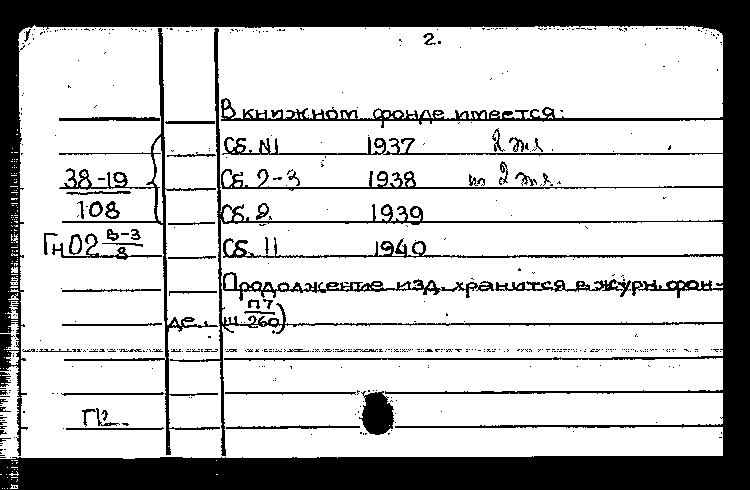 2.
В книжном фонде имеется:
Сб. N1 1937 2 экз.
38-19 Сб. 2-3 1938 по 2 экз.
108 Сб. 2. 1939
Гн02 В-3/8 Сб. 11 1940
Продолжение изд. хранится в журн. фон-
де. (ш П7/260)